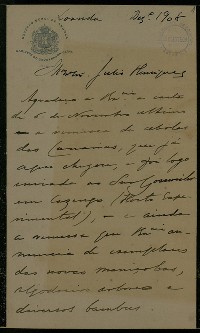 Loanda Dez.º 1908
Julio Henriques
Agradeço a V. Ex.ª a carta
de 5 de Novembro ultimo
a remessa de cebolas
das Canarias, que já
aqui chegou, e foi logo
enviada ao Snr Gossweiler
em Cazengo (Horto Expe-
rimental), e ainda
a remessa que V. Ex.ª an-
nuncia de exemplares
das novas maniçobas,
algodoeiros e
diversos bambus.